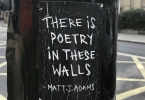 THERE IS
POETRY
IN THESE
WALLS
- MATT J. ADAMS